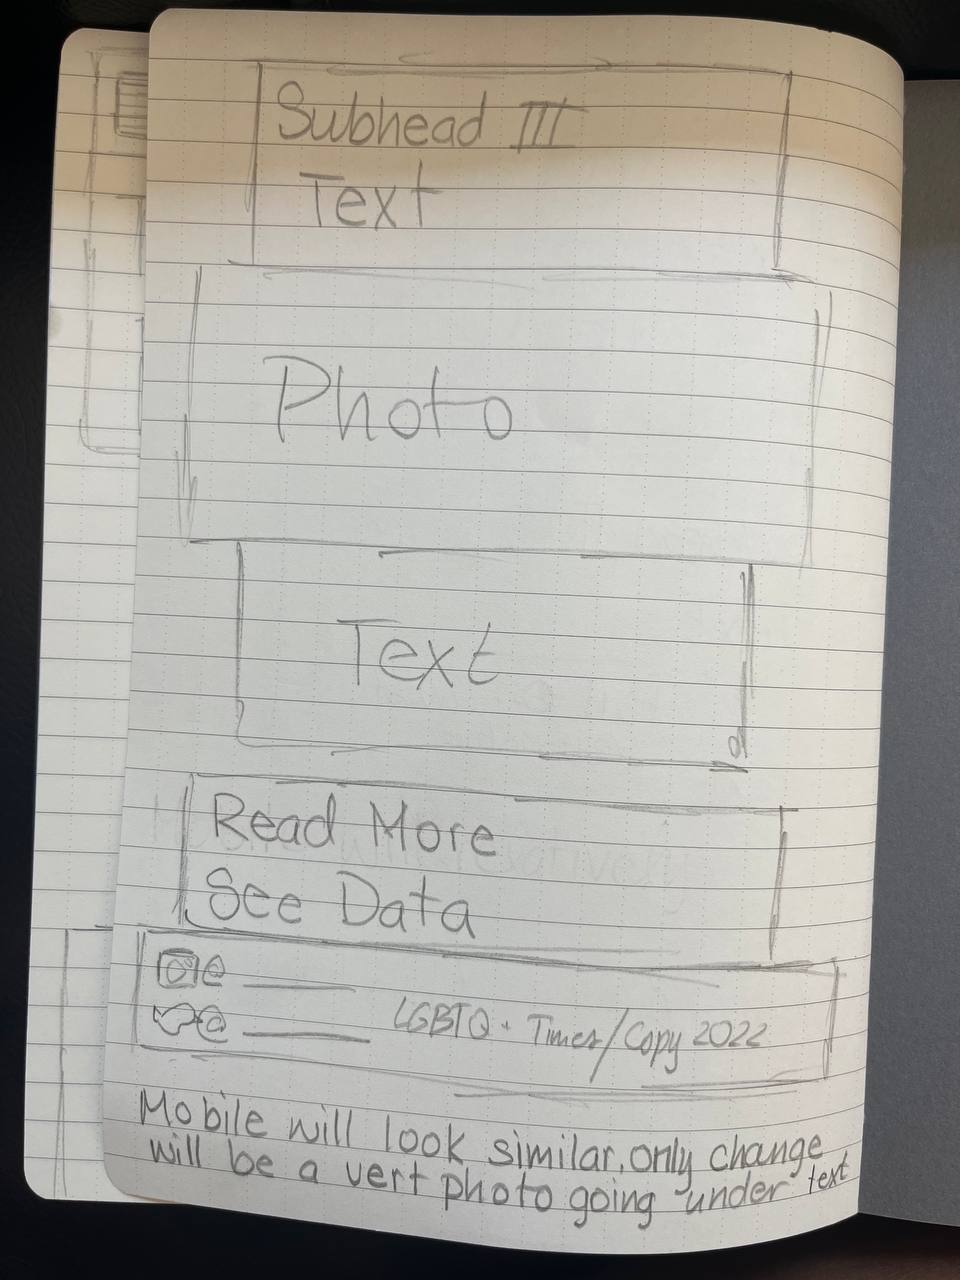 Subhead III
Text
Photo
Text
Read More
See Data
@
@
LGBTQ + Times/Copy 2022
Mobile will look similar, only change
will be a vert photo going under text